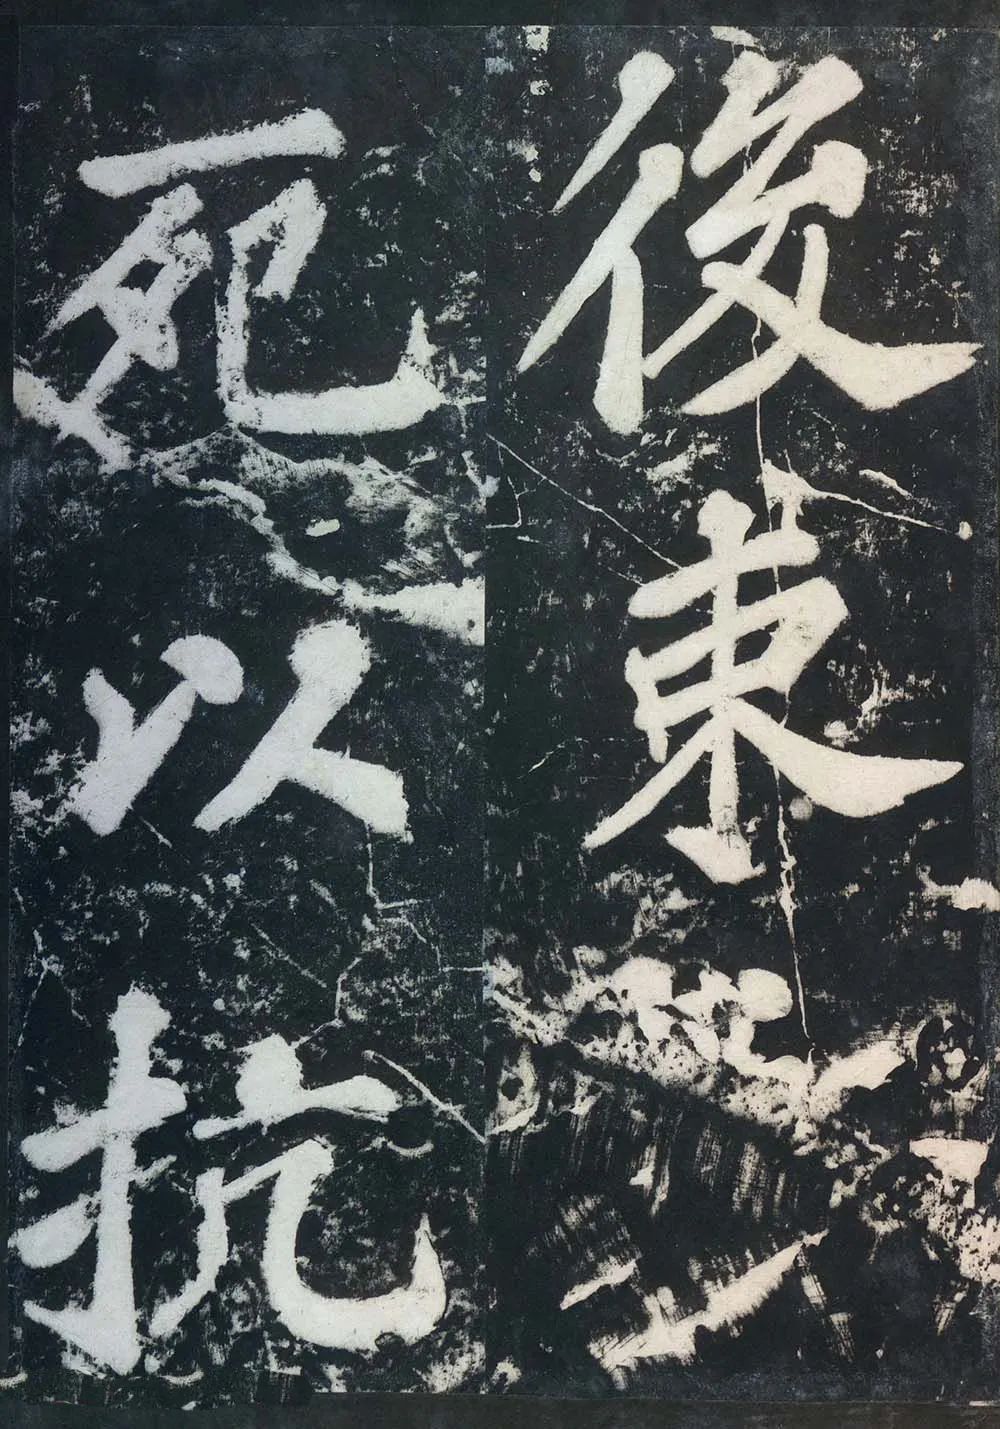 後束
死以抗